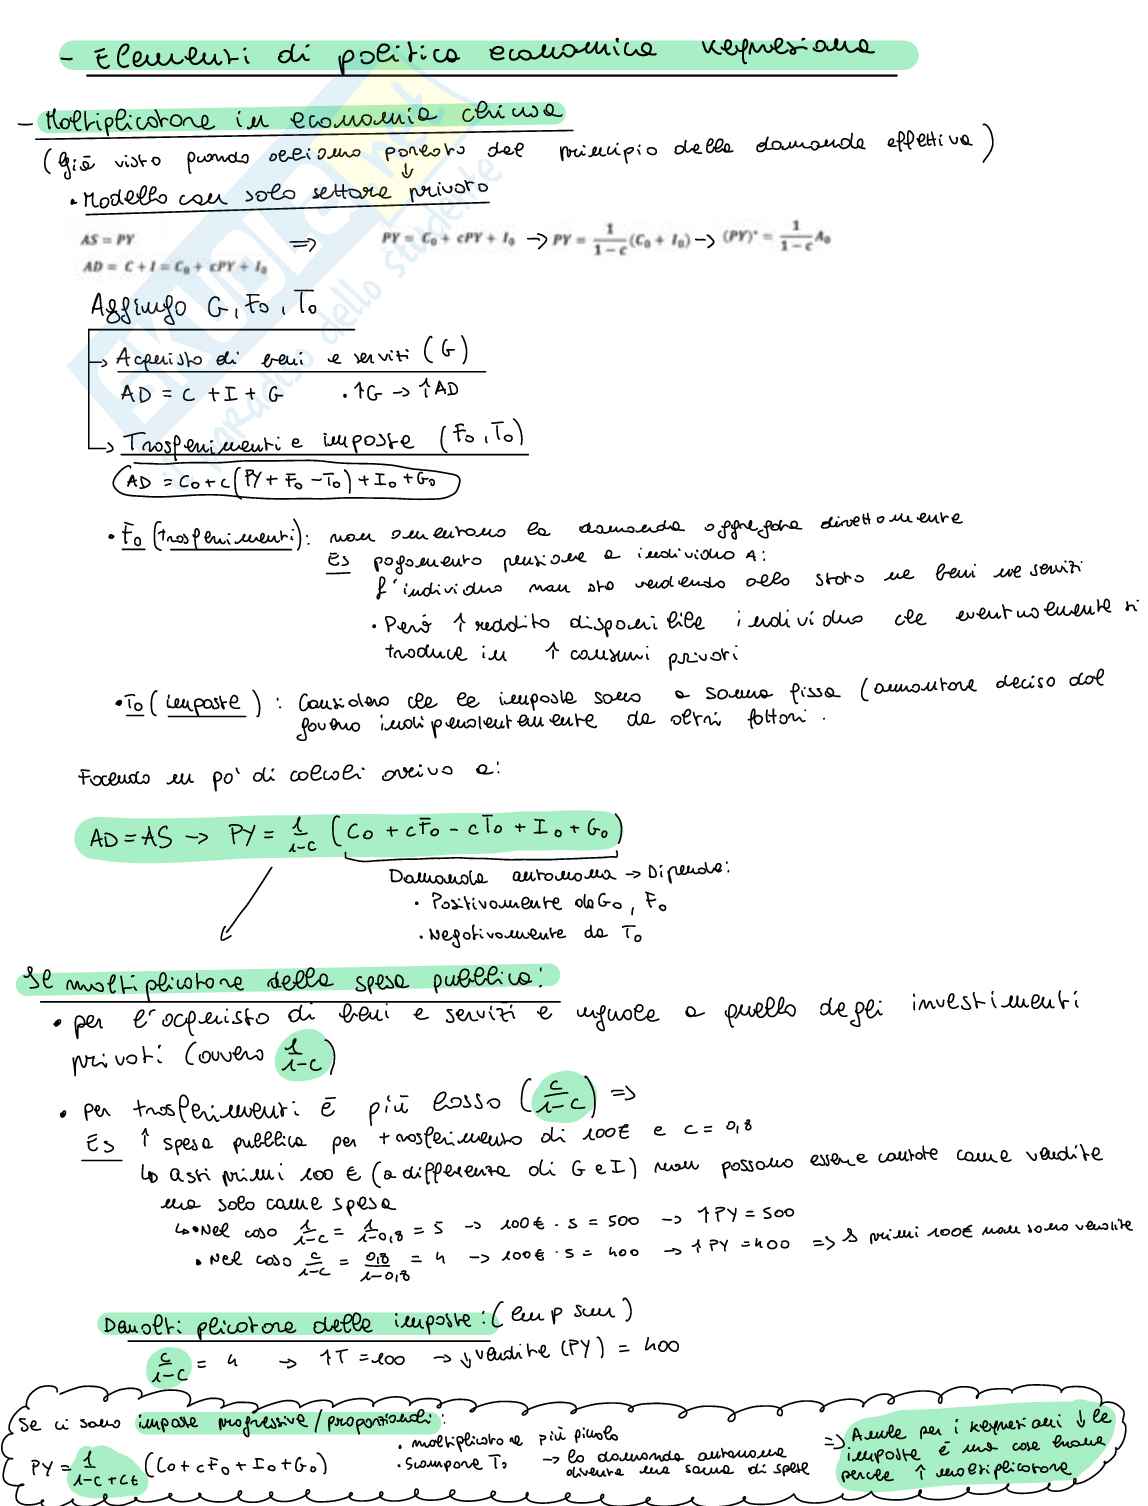 - Elementi di politica economica keynesiana
- Moltiplicatore in economia chiusa
(già visto quando abbiamo parlato del principio della domanda effettiva)
↓
• Modello con solo settore privato
AS = PY ⇒ PY = C₀ + cPY + I₀ → PY = 1/(1-c) (C₀ + I₀) → (PY)* = 1/(1-c) A₀
AD = C + I = C₀ + cPY + I₀
Aggiungo G, F₀, T₀
→ Acquisto di beni e serviti (G)
AD = C + I + G . ↑G → ↑AD
→ Trasferimenti e imposte (F₀, T₀)
AD = C₀ + c(PY + F₀ - T₀) + I₀ + G₀
• F₀ (trasferimenti): non aumentano la domanda aggregata direttamente
Es pagamento pensione a individuo A:
l'individuo non sta vendendo allo stato ne beni ne servizi
• Però ↑ reddito disponibile individuo che eventualmente si
traduce in ↑ consumi privati
• T₀ (imposte): Considero che le imposte sono a somma fissa (ammontare deciso dal
governo indipendentemente da altri fattori.
Facendo un po' di calcoli arrivo a:
AD = AS → PY = 1/(1-c) (C₀ + cF̄₀ - cT̄₀ + I₀ + G₀)
Domanda autonoma → Dipende:
• Positivamente da G₀, F₀
• Negativamente da T₀
Il moltiplicatore della spesa pubblica:
• per l'acquisto di beni e servizi è uguale a quello degli investimenti
privati (ovvero 1/(1-c))
• per trasferimenti è più basso (c/(1-c)) ⇒
Es ↑ spesa pubblica per trasferimento di 100€ e c = 0,8
↳ asti primi 100 € (a differenza di G e I) non possono essere contate come vendite
ma solo come spesa
↳ • Nel caso 1/(1-c) = 1/(1-0,8) = 5 → 100€ · 5 = 500 → ↑PY = 500
• Nel caso c/(1-c) = 0,8/(1-0,8) = 4 → 100€ · 5 = 400 → ↑PY = 400 ⇒ I primi 100€ non sono vendite
Demoltiplicatore delle imposte: (lump sum)
c/(1-c) = 4 → ↑T = 100 → ↓ vendite (PY) = 400
Se ci sono imposte progressive/proporzionali:
PY = 1/(1-c+ct) (C₀ + cF₀ + I₀ + G₀)
• moltiplicatore più piccolo
• Scompare T₀ → la domanda autonoma
diventa una somma di spese
⇒ Anche per i keynesiani ↓ le
imposte è una cosa buona
perche ↑ moltiplicatore
SKUOLA.net
il paradiso dello studente